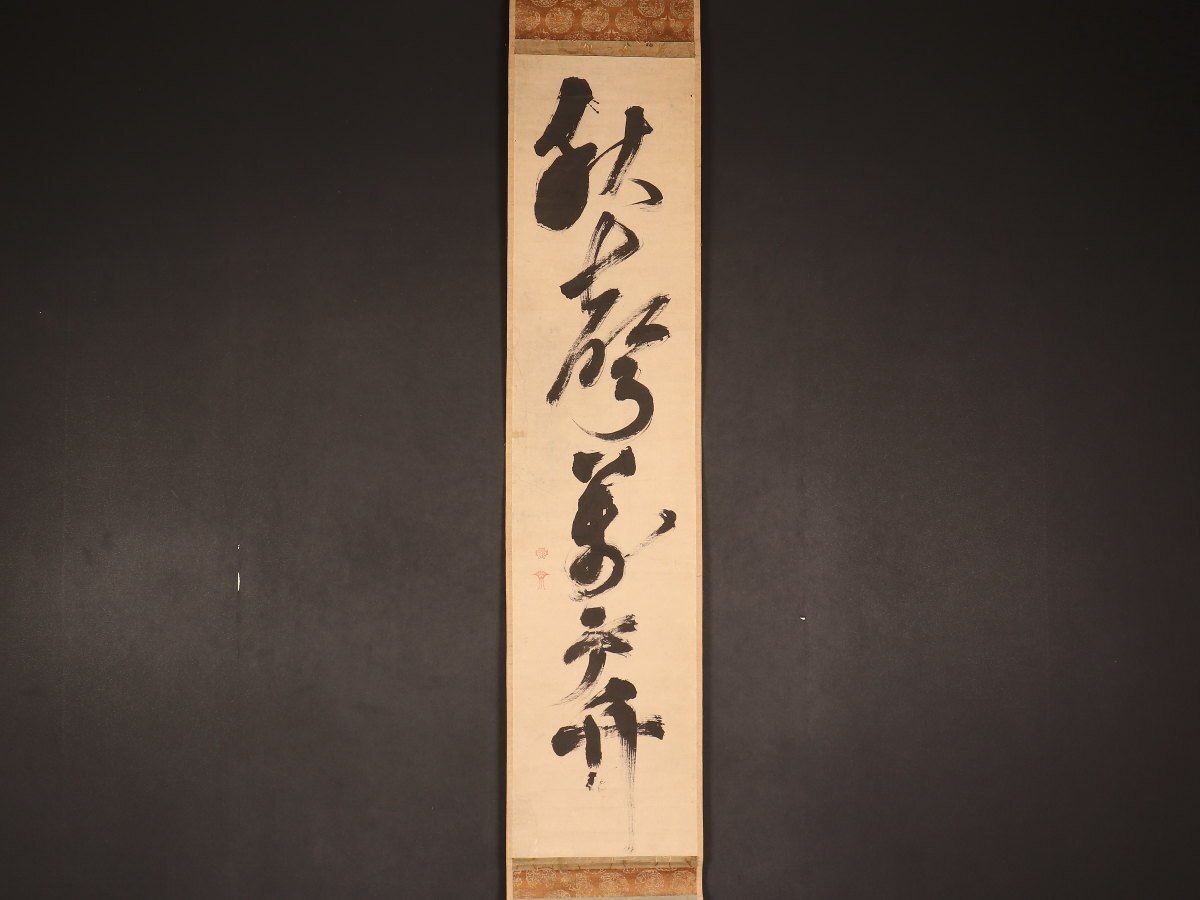 秋聲萬戸竹